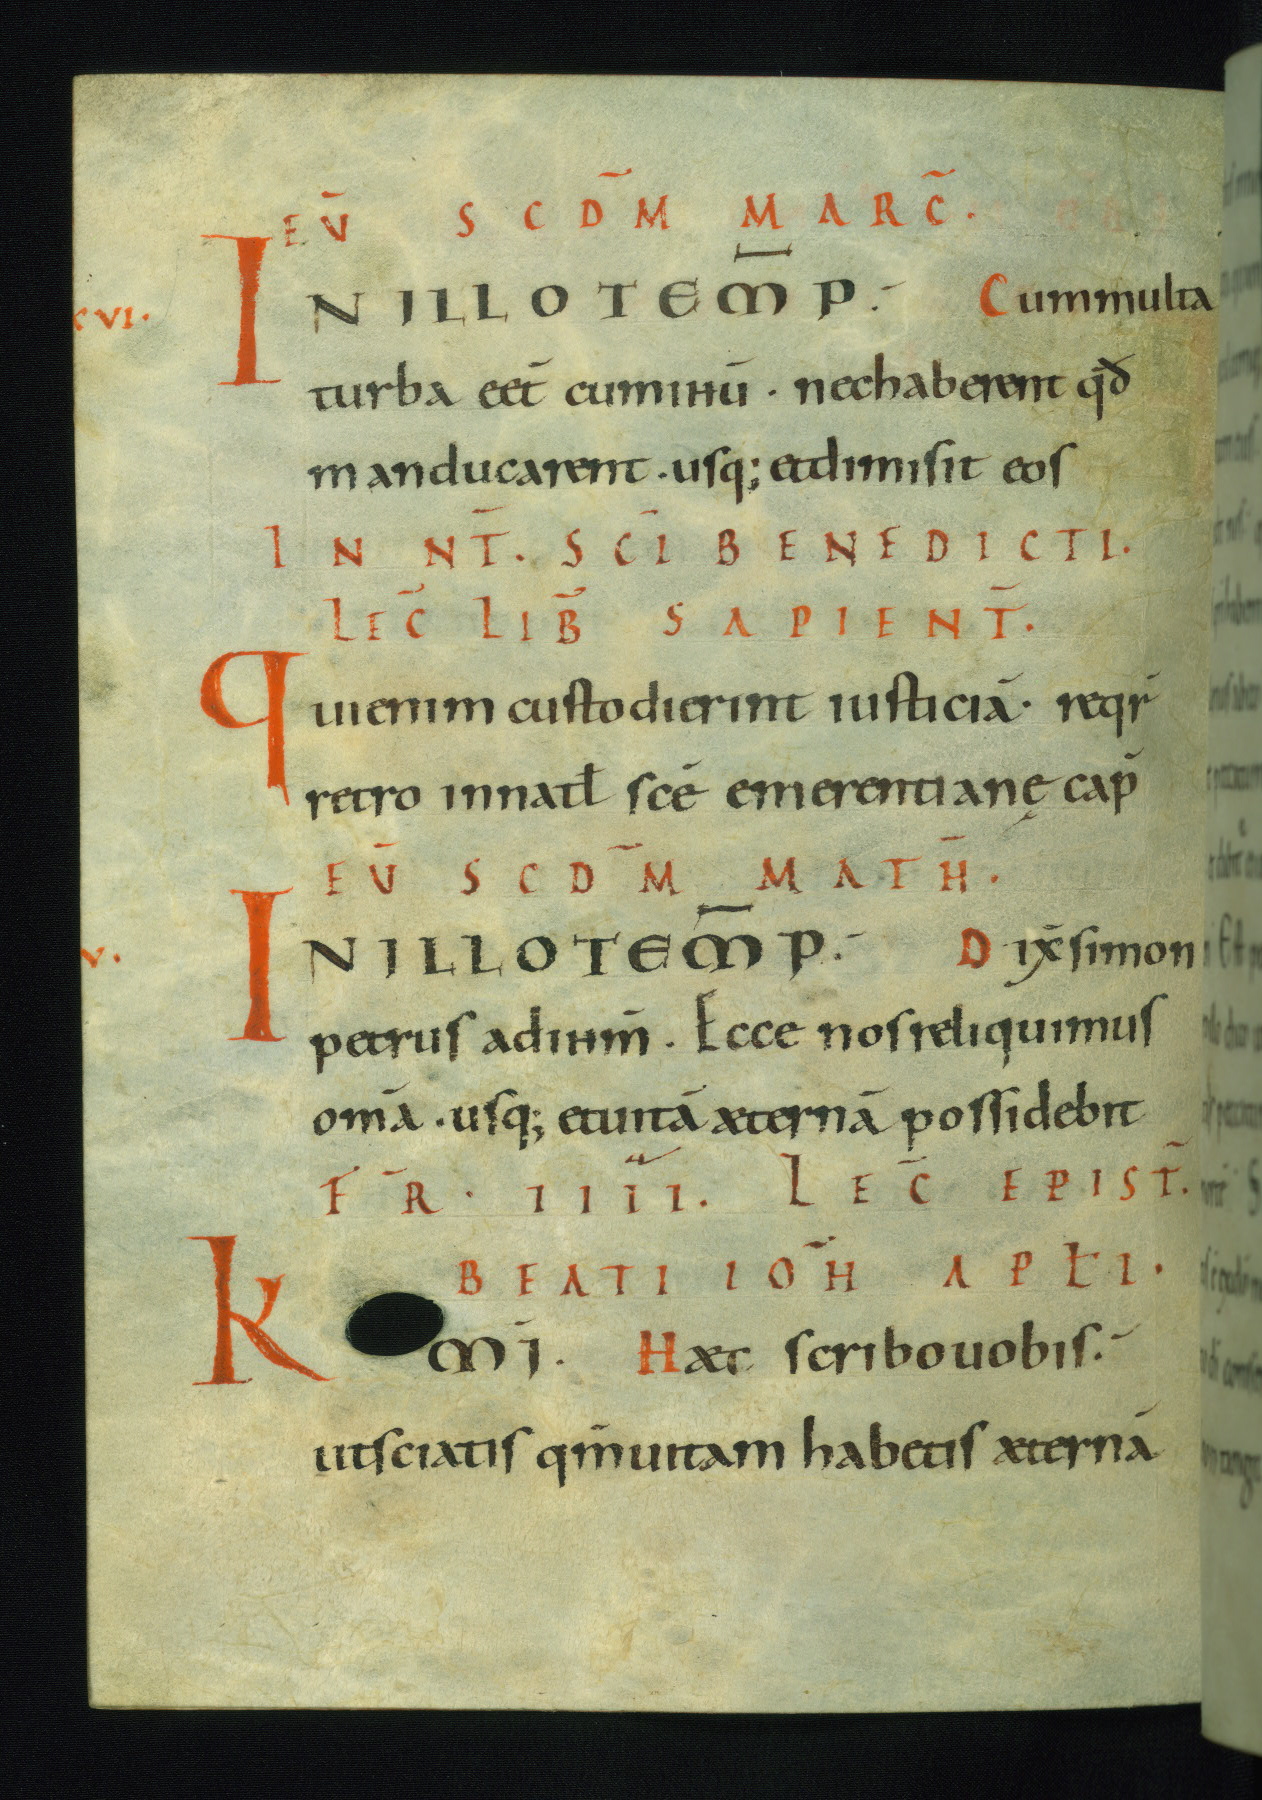 EV̄ SCD̄M MARC̄.
XVI.
IN ILLO TEM̄P. Cum multa
turba eēt cum ihū . nec haberent qđ
manducarent . usq; et dimisit eos
IN NT̄. SC̄I BENEDICTI.
LEC̄ LIB̄ SAPIENT̄.
Qui enim custodierint iusticiā. reqr̄
retro in natł scē emerentianę cap̄
EV̄ SCD̄M MATH̄.
V.
IN ILLO TEM̄P. Dix̄ simon
petrus ad ihm̄ . Ecce nos reliquimus
om̄a . usq; et uitā æternā possidebit
FR̄. IIII. LEC̄ EPIST̄.
BEATI IOH̄ APŁI.
K mī. Hæc scribo uobis.
ut sciatis qm̄ uitam habetis æternā